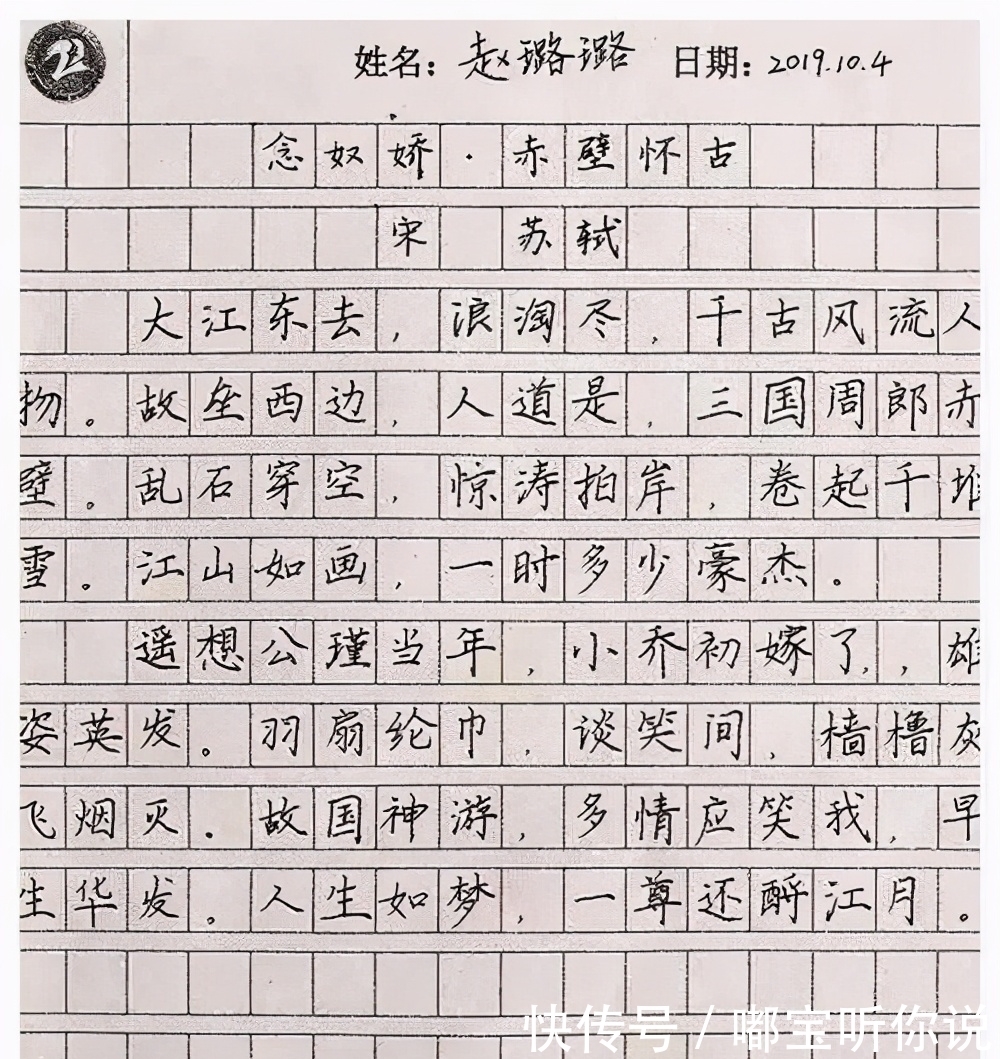 姓名：赵璐璐 日期：2019.10.4
念奴娇·赤壁怀古
宋 苏轼
大江东去，浪淘尽，千古风流人
物。故垒西边，人道是，三国周郎赤
壁。乱石穿空，惊涛拍岸，卷起千堆
雪。江山如画，一时多少豪杰。
遥想公瑾当年，小乔初嫁了，，雄
姿英发。羽扇纶巾，谈笑间，樯橹灰
飞烟灭．故国神游，多情应笑我，早
生华发。人生如梦，一尊还酹江月。
快传号 / 嘟宝听你说